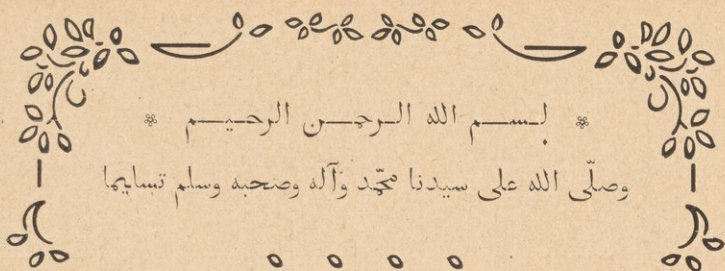 بسم الله الرحمن الرحيم
وصلّى الله على سيدنا محمّد وآله وصحبه وسلم تسليما